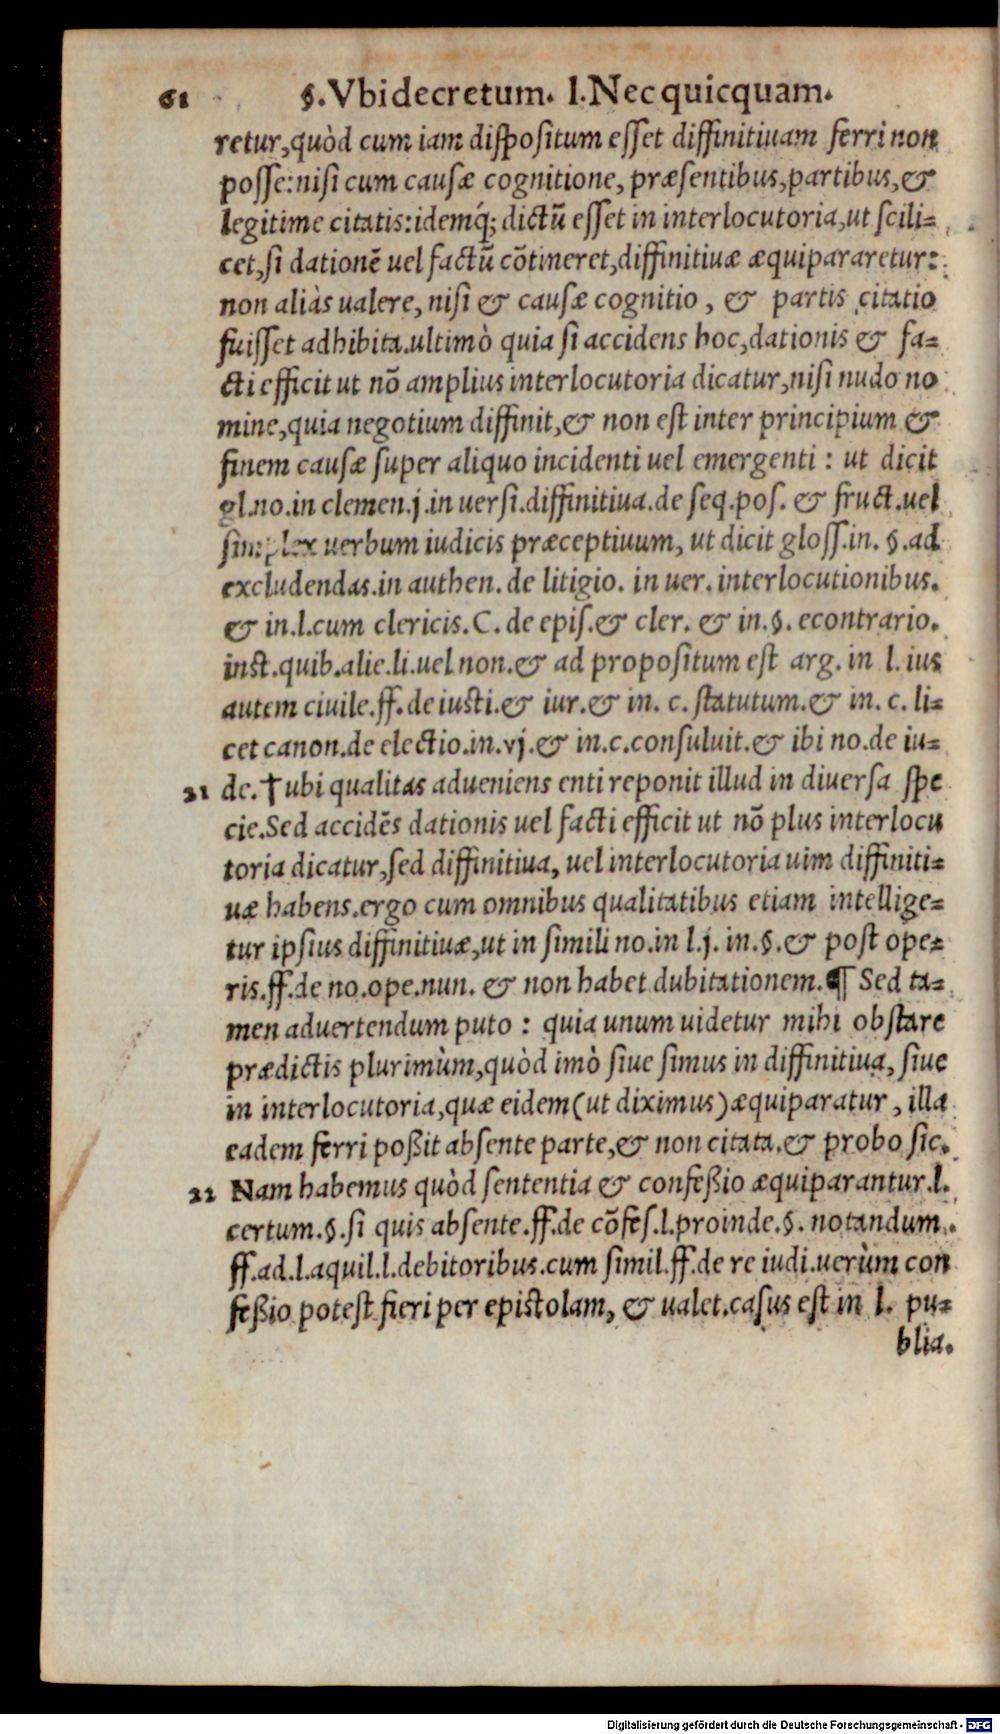 61 §.Vbi decretum. l.Nec quicquam.
retur,quòd cum iam dispositum esset diffinitiuam ferri non
posse:nisi cum causæ cognitione, præsentibus,partibus,&
legitime citatis:idemq́; dictū esset in interlocutoria,ut scili=
cet,si dationē uel factū cōtineret,diffinitiuæ æquipararetur:
non aliàs ualere, nisi & causæ cognitio, & partis citatio
fuisset adhibita.ultimò quia si accidens hoc,dationis & fa=
cti efficit ut nō amplius interlocutoria dicatur,nisi nudo no
mine,quia negotium diffinit,& non est inter principium &
finem causæ super aliquo incidenti uel emergenti : ut dicit
gl.no.in clemen.j.in uersi.diffinitiua.de seq.pos. & fruct.uel
simplex uerbum iudicis præceptiuum, ut dicit gloss.in. §.ad
excludendas.in authen. de litigio. in uer. interlocutionibus.
& in.l.cum clericis.C. de epis.& cler. & in.§. econtrario.
inst.quib.alie.li.uel non.& ad propositum est arg. in l. ius
autem ciuile.ff.de iusti.& iur.& in. c. statutum.& in. c. li=
cet canon.de electio.in.vj.& in.c.consuluit.& ibi no.de iu=
21 de.†ubi qualitas adueniens enti reponit illud in diuersa spe
cie.Sed accidēs dationis uel facti efficit ut nō plus interlocu
toria dicatur,sed diffinitiua, uel interlocutoria uim diffiniti=
uæ habens.ergo cum omnibus qualitatibus etiam intellige=
tur ipsius diffinitiuæ,ut in simili no.in l.j. in.§.& post ope=
ris.ff.de no.ope.nun. & non habet dubitationem.¶ Sed ta=
men aduertendum puto : quia unum uidetur mihi obstare
prædictis plurimùm,quòd imò siue simus in diffinitiua, siue
in interlocutoria,quæ eidem(ut diximus)æquiparatur, illa
eadem ferri poßit absente parte,& non citata.& probo sic.
22 Nam habemus quòd sententia & confeßio æquiparantur.l.
certum.§.si quis absente.ff.de cōfes.l.proinde.§. notandum.
ff.ad.l.aquil.l.debitoribus.cum simil.ff.de re iudi.uerùm con
feßio potest fieri per epistolam, & ualet.casus est in l. pu=
blia.
Digitalisierung gefördert durch die Deutsche Forschungsgemeinschaft - DFG